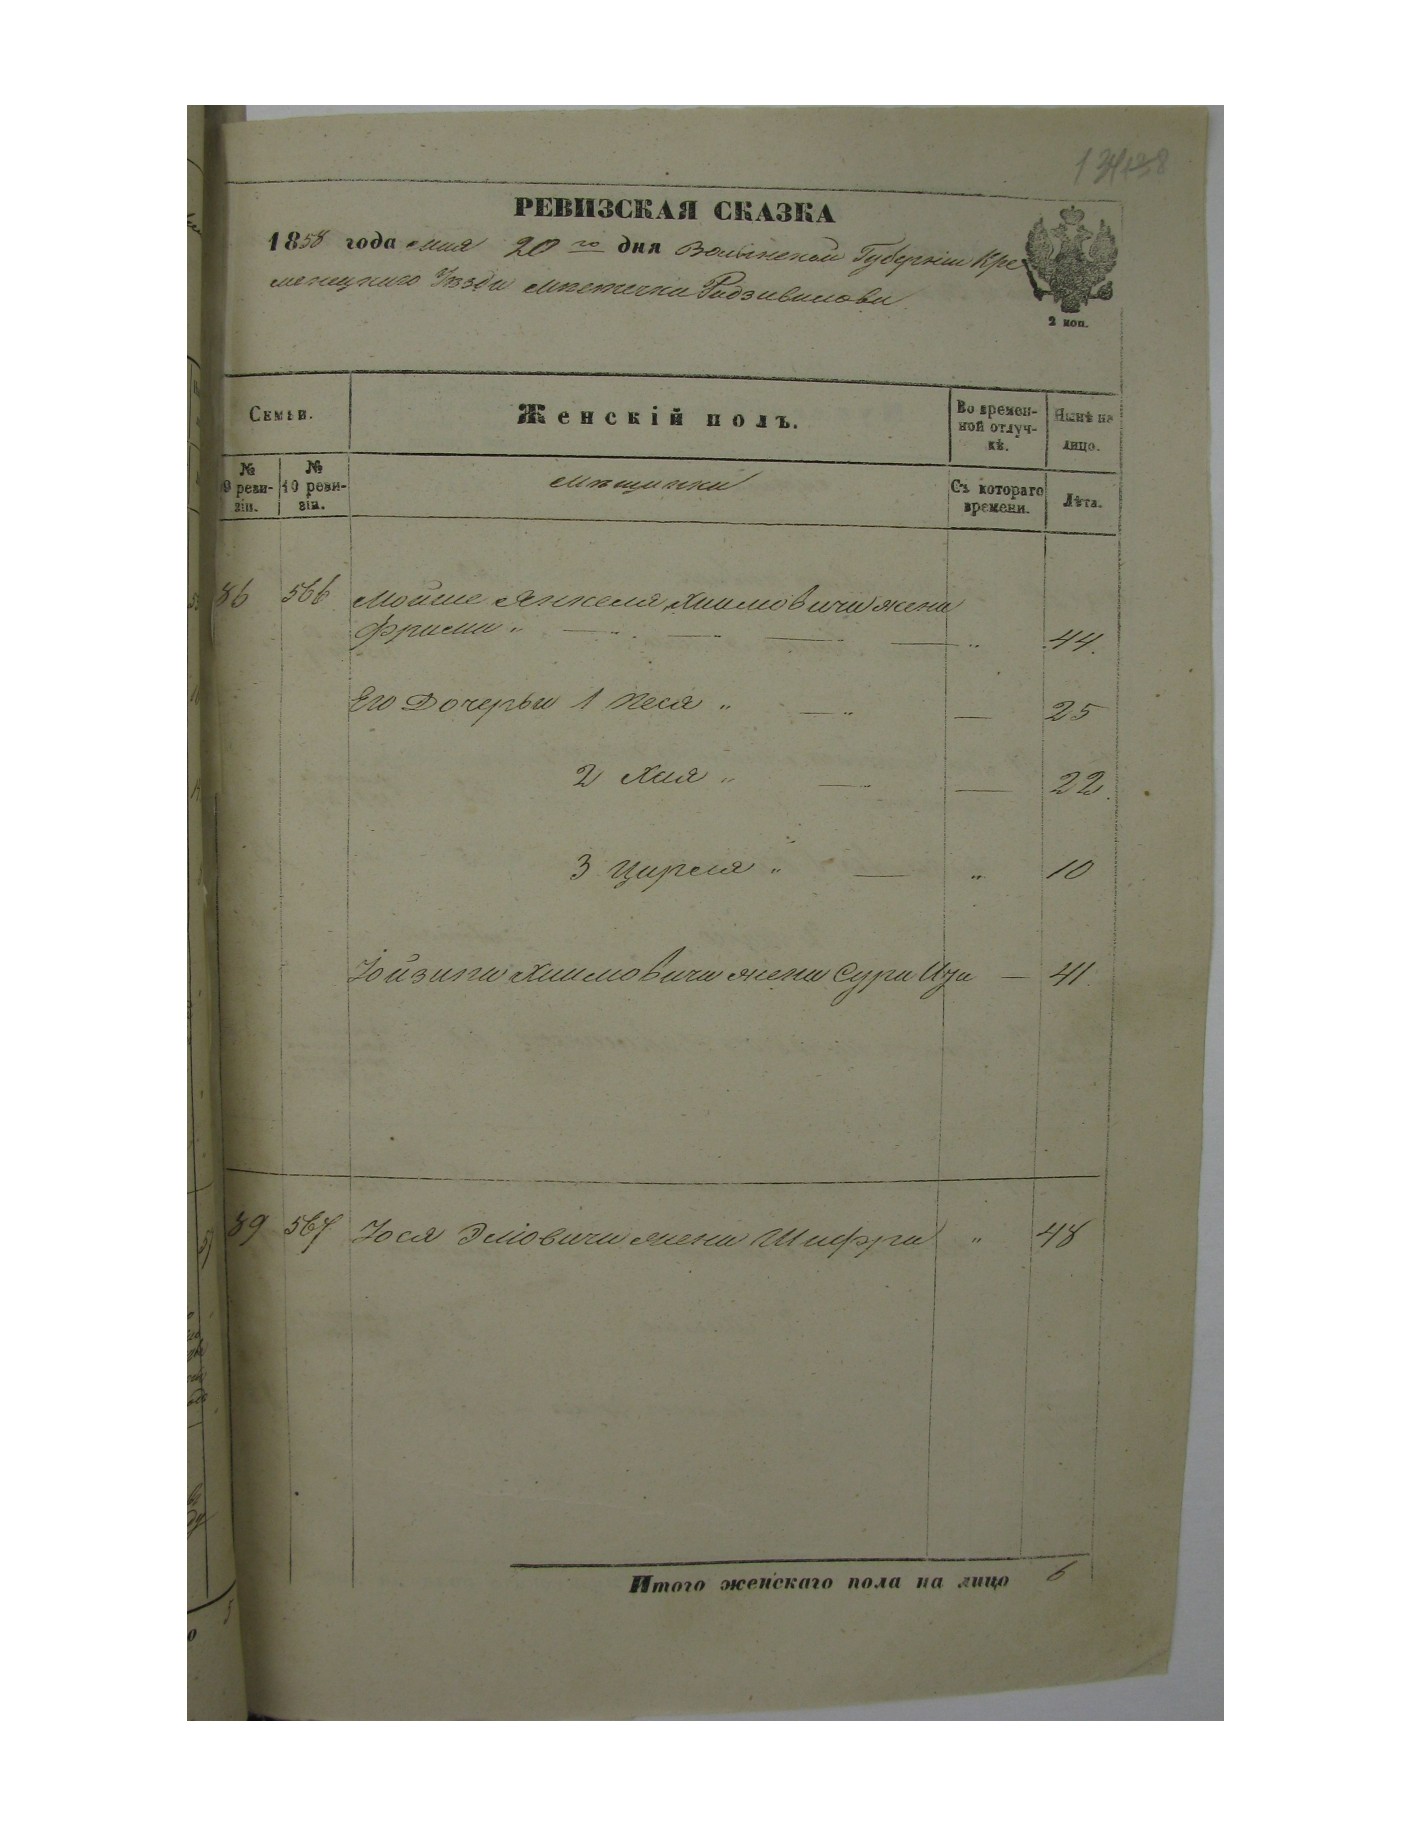 РЕВИЗСКАЯ СКАЗКА
1858 года мая 20 го дня Волынской Губерніи Кре
менецкаго Уѣзда мѣстечка Радзивилова
2 коп.
Семьи.
Женскій полъ.
Во времен-
ной отлуч-
кѣ.
Нынѣ на
лицо.
№
9 реви-
зіи.
№
10 реви-
зіи.
мѣщанки
Съ котораго
времени.
Лѣта.
86 566 Мойше Янкеля Хаимовича жена
Фрима " — — — — " 44.
Его Дочерьи 1 Песя " — " — 25
2 Хая " — — 22.
3 Цирля " — " 10
Хаимовича жена Сура — 41
89 567 Іося жена Шифра " 48
Итого женскаго пола на лицо 6